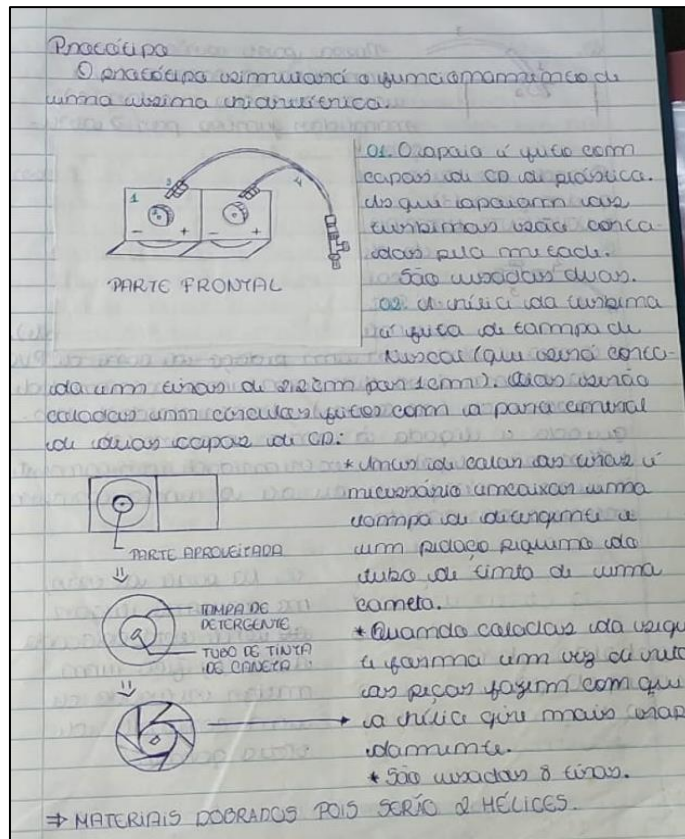 Protótipo
O protótipo simulará o funcionamento de
uma usina hidrelétrica.
1
3
4
- + - +
PARTE FRONTAL
01. O apoio é feito com
capas de CD de plástico.
As que apoiam as
turbinas são corta-
das pela metade.
São usadas duas.
02. A hélice da turbina
é feita de tampa de
Nescau (que será corta-
da em tiras de 2,2cm por 1cm). Elas serão
coladas em círculos feitos com a parte central
de várias capas de CD:
PARTE APROVEITADA
TAMPA DE
DETERGENTE
TUBO DE TINTA
DE CANETA
* Antes de colar as tiras é
necessário encaixar uma
tampa de detergente e
um pedaço pequeno do
tubo de tinta de uma
caneta.
* Quando coladas da seguin
e forma em vez de reto
as peças fazem com que
a hélice gire mais rap
idamente.
* São usadas 8 tiras.
⇒ MATERIAIS DOBRADOS POIS SERÃO 2 HÉLICES.